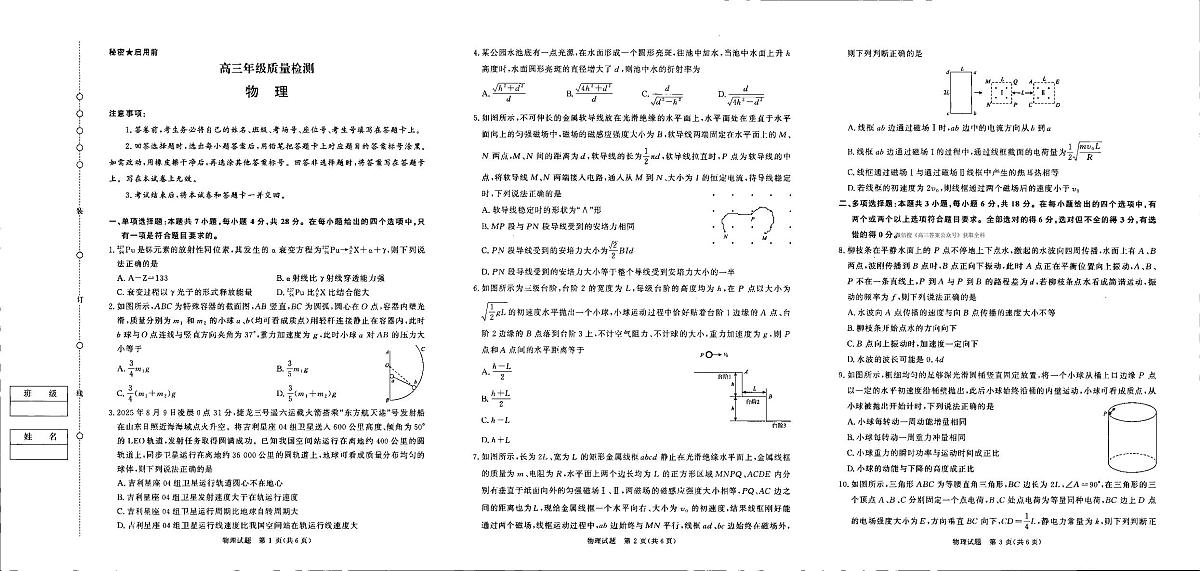 秘密★启用前
高三年级质量检测
物 理
注意事项：
1.答卷前，考生务必将自己的姓名、班级、考场号、座位号、考生号填写在答题卡上。
2.回答选择题时，选出每小题答案后，用铅笔把答题卡上对应题目的答案标号涂黑。
如需改动，用橡皮擦干净后，再选涂其他答案标号。回答非选择题时，将答案写在答题卡
上。写在本试卷上无效。
3.考试结束后，将本试卷和答题卡一并交回。
一、单项选择题：本题共7小题，每小题4分，共28分。在每小题给出的四个选项中，只
有一项是符合题目要求的。
1.²³⁷₉₄Pu是钚元素的放射性同位素，其发生的α衰变方程为²³⁷₉₄Pu→ᴬ_Z X+α+γ，则下列说
法正确的是
A. A−Z=133
B. α射线比γ射线穿透能力强
C. 衰变过程以γ光子的形式释放能量
D. ²³⁷₉₄Pu比ᴬ_Z X比结合能大
2.如图所示，ABC为特殊容器的截面图，AB竖直，BC为圆弧，圆心在O点，容器内壁光
滑，质量分别为m₁和m₂的小球a、b(均可看成质点)用轻杆连接静止在容器内，此时
b球与O点连线与竖直方向夹角为37°，重力加速度为g，此时小球a对AB的压力大
小等于
A. 3/4 m₁g
B. 3/5 m₁g
C. 3/4 (m₁+m₂)g
D. 3/5 (m₁+m₂)g
3.2025年8月9日凌晨0点31分，捷龙三号遥六运载火箭搭乘“东方航天港”号发射船
在山东日照近海海域点火升空。将吉利星座04组卫星送入600公里高度、倾角为50°
的LEO轨道，发射任务取得圆满成功。已知我国空间站运行在离地约400公里的圆
轨道上，同步卫星运行在离地约36 000公里的圆轨道上，地球可看成质量分布均匀的
球体，则下列说法正确的是
A. 吉利星座04组卫星运行轨道圆心不在地心
B. 吉利星座04组卫星发射速度大于在轨运行速度
C. 吉利星座04组卫星运行周期比地球自转周期大
D. 吉利星座04组卫星运行线速度比我国空间站在轨运行线速度大
物理试题 第1页(共6页)
班 级
姓 名
装
订
线
4.某公园水池底有一点光源，在水面形成一个圆形亮斑，往池中加水，当池中水面上升h
高度时，水面圆形亮斑的直径增大了d，则池中水的折射率为
A. √(h²+d²)/d
B. √(4h²+d²)/d
C. d/√(d²−h²)
D. d/√(4h²−d²)
5.如图所示，不可伸长的金属软导线放在光滑绝缘的水平面上，水平面处在垂直于水平
面向上的匀强磁场中，磁场的磁感应强度大小为B，软导线两端固定在水平面上的M、
N两点，M、N间的距离为d，软导线的长为1/2 πd，软导线拉直时，P点为软导线的中
点，将软导线M、N两端接入电路，通入从M到N、大小为I的恒定电流，待导线稳定
时，下列说法正确的是
A. 软导线稳定时的形状为“Λ”形
B. MP段与PN段导线受到的安培力相同
C. PN段导线受到的安培力大小为√2/2 BId
D. PN段导线受到的安培力大小等于整个导线受到安培力大小的一半
M
N
6.如图所示为三级台阶，台阶2的宽度为L，每级台阶的高度均为h，在P点以大小为
√(1/2 gL)的初速度水平抛出一个小球，小球运动过程中恰好贴着台阶1边缘的A点、台
阶2边缘的B点落到台阶3上，不计空气阻力、不计球的大小，重力加速度为g，则P
点和A点间的水平距离等于
A. (h−L)/2
B. (h+L)/2
C. h−L
D. h+L
P
v₀
台阶1
A
h
L
台阶2
B
h
台阶3
7.如图所示，长为2L、宽为L的矩形金属线框abcd静止在光滑绝缘水平面上，金属线框
的质量为m、电阻为R，水平面上两个边长均为L的正方形区域MNPQ、ACDE内分
别有垂直于纸面向外的匀强磁场Ⅰ、Ⅱ，两磁场的磁感应强度大小相等，PQ、AC边之
间的距离也为L，现给金属线框一个水平向右、大小为v₀的初速度，结果线框刚好能
通过两个磁场，线框运动过程中，ab边始终与MN平行，线框ad、bc边始终在磁场外，
物理试题 第2页(共6页)
则下列判断正确的是
d
L
a
2L
c
b
M
Q
A
E
Ⅰ
L
Ⅱ
N
P
C
D
A. 线框ab边通过磁场Ⅰ时，ab边中的电流方向从b到a
B. 线框ab边通过磁场Ⅰ的过程中，通过线框截面的电荷量为1/2 √(mv₀L/R)
C. 线框通过磁场Ⅰ与通过磁场Ⅱ线框中产生的焦耳热相等
D. 若线框的初速度为2v₀，则线框通过两个磁场后的速度小于v₀
二、多项选择题：本题共3小题，每小题6分，共18分。在每小题给出的四个选项中，有
两个或两个以上选项符合题目要求。全部选对的得6分，选对但不全的得3分，有选
错的得0分。
8.柳枝条在平静水面上的P点不停地上下点水，激起的水波向四周传播，水面上有A、B
两点，波刚传播到B点时，B点正向下振动，此时A点正在平衡位置向上振动，A、B、
P不在一条直线上，P到A与P到B的路程差为d，若柳枝条点水看成简谐运动，振
动的频率为f，则下列说法正确的是
A. 水波向A点传播的速度与向B点传播的速度大小不等
B. 柳枝条开始点水的方向向下
C. B点向上振动时，加速度一定向下
D. 水波的波长可能是0.4d
9.如图所示，粗细均匀的足够深光滑圆桶竖直固定放置，将一个小球从桶上口边缘P点
以一定的水平初速度沿桶壁抛出，此后小球始终沿桶的内壁运动，小球可看成质点，从
小球被抛出开始计时，下列说法正确的是
A. 小球每转动一周动能增量相同
B. 小球每转动一周重力冲量相同
C. 小球重力的瞬时功率与运动时间成正比
D. 小球的动能与下降的高度成正比
P
10.如图所示，三角形ABC为等腰直角三角形，BC边长为2L，∠A=90°，在三角形的三
个顶点A、B、C分别固定一个点电荷，B、C处点电荷为等量同种电荷，BC边上D点
的电场强度大小为E，方向垂直BC向下，CD=1/4 L，静电力常量为k，则下列判断正
物理试题 第3页(共6页)